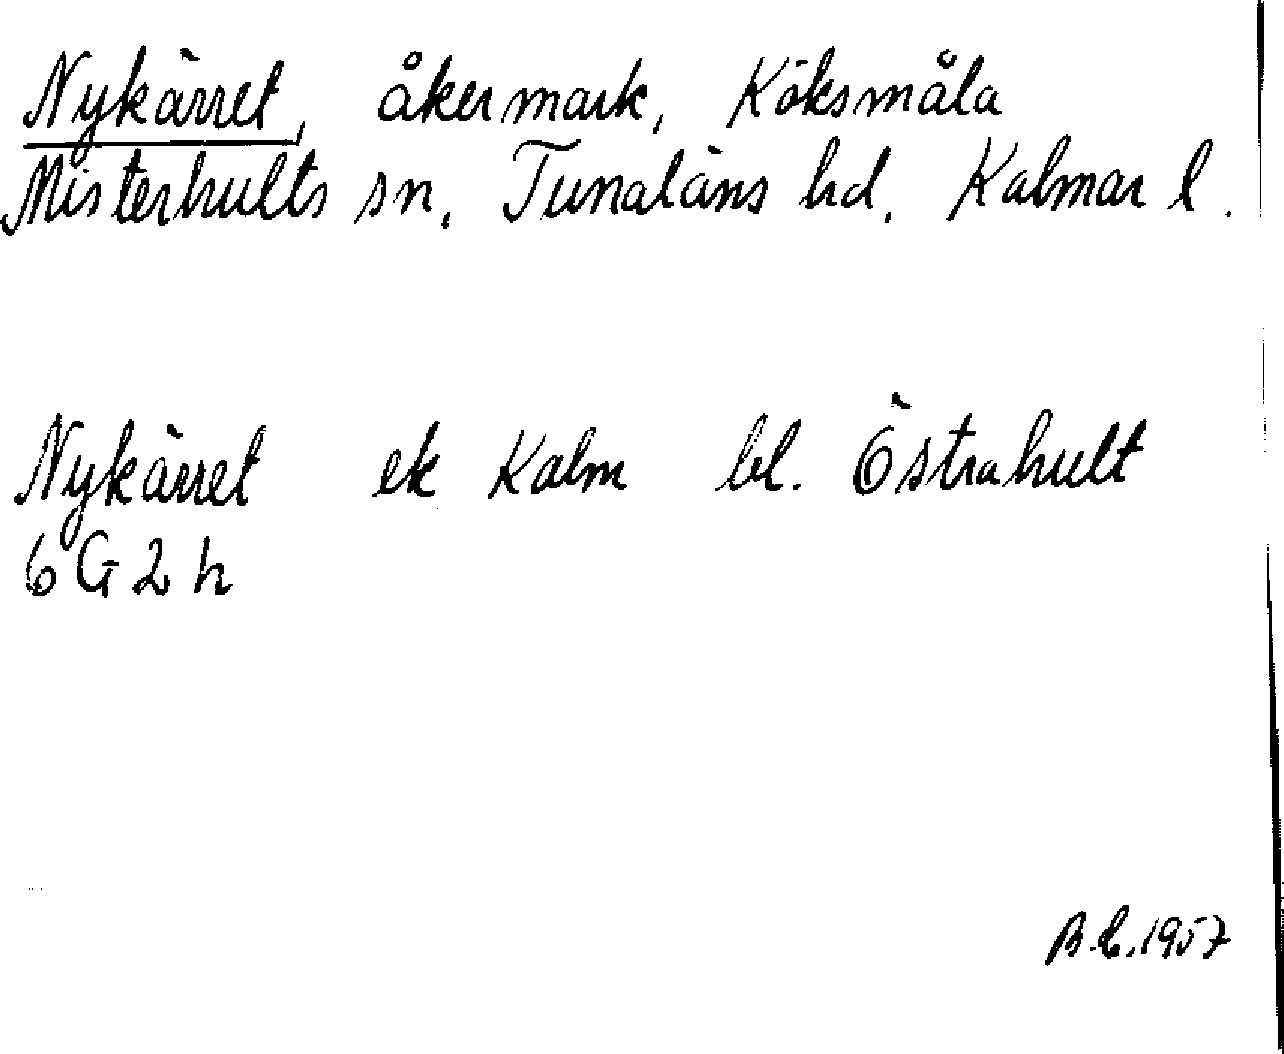 Nykärret, åkermark, Köksmåla
Misterhults sn. Tunaläns hd. Kalmar l.
Nykärret ek Kalm bl. Östrahult
6G2h
1957